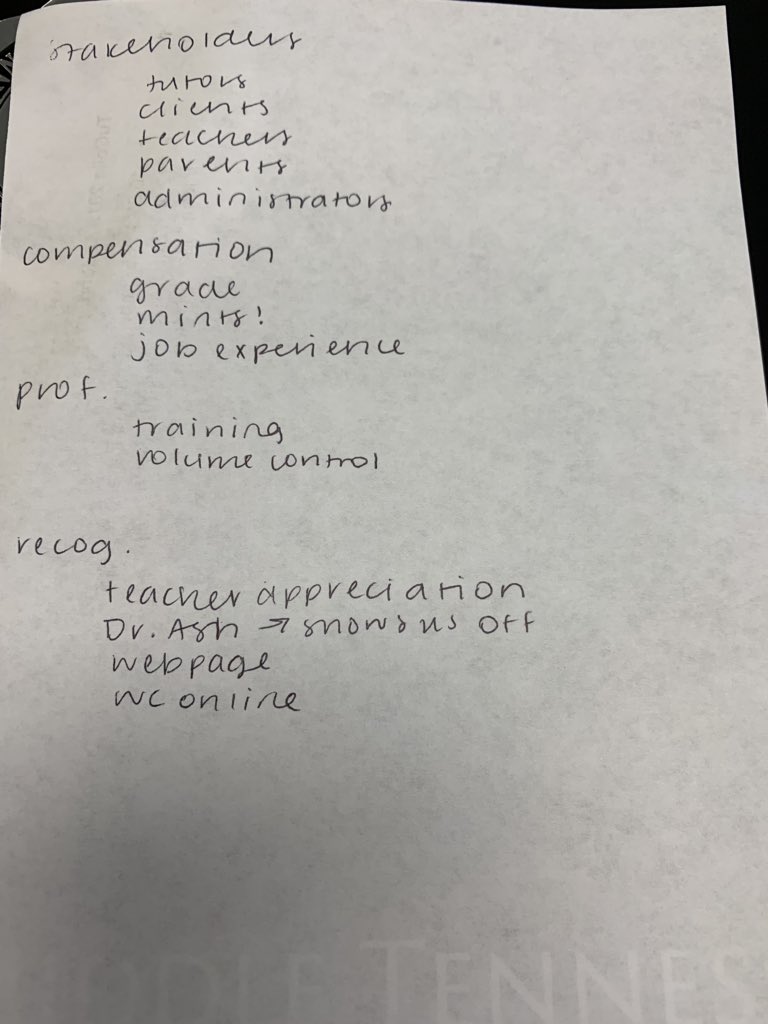 stakeholders
tutors
clients
teachers
parents
administrators
compensation
grade
mints!
job experience
prof.
training
volume control
recog.
teacher appreciation
Dr. Ash → shows us off
webpage
WC online
TENNES